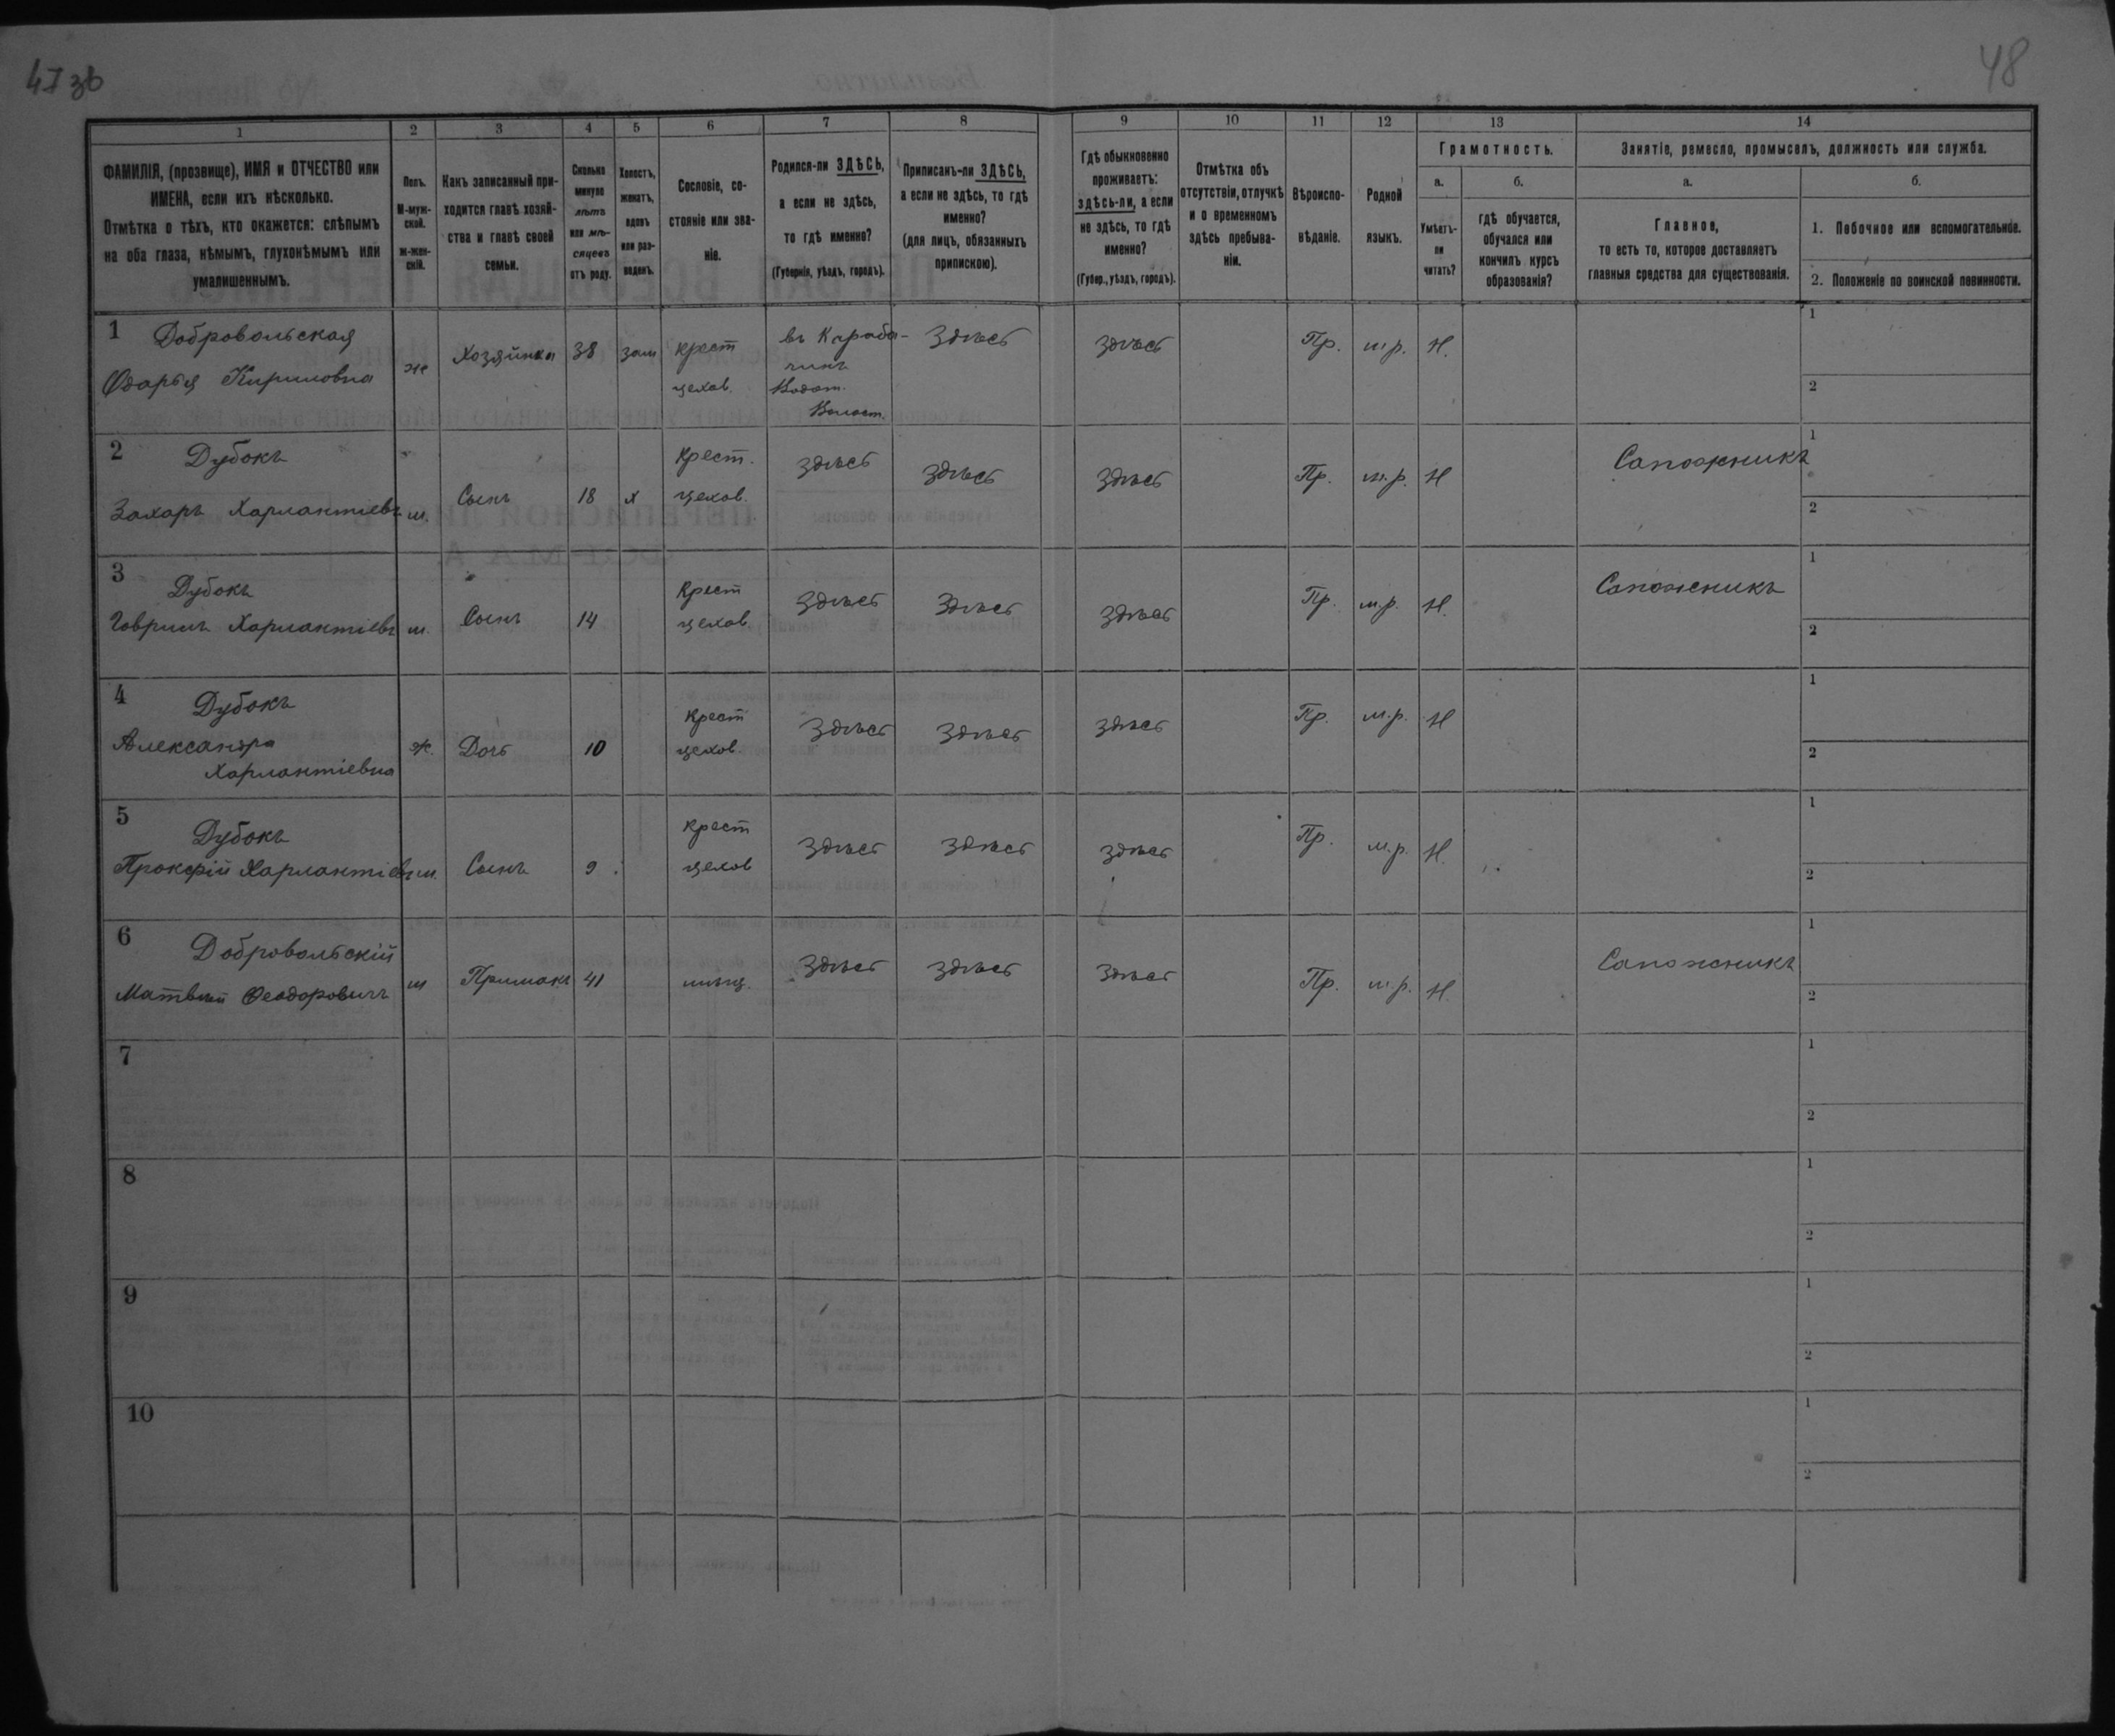 47 зв
48
1
2
3
4
5
6
7
8
9
10
11
12
13
14
ФАМИЛІЯ, (прозвище), ИМЯ и ОТЧЕСТВО или
ИМЕНА, если ихъ нѣсколько.
Отмѣтка о тѣхъ, кто окажется: слѣпымъ
на оба глаза, нѣмымъ, глухонѣмымъ или
умалишеннымъ.
Полъ.
М-муж-
ской.
ж-жен-
скій.
Какъ записанный при-
ходится главѣ хозяй-
ства и главѣ своей
семьи.
Сколько
минуло
лѣтъ
или мѣ-
сяцевъ
отъ роду.
Холостъ,
женатъ,
вдовъ
или раз-
веденъ.
Сословіе, со-
стояніе или зва-
ніе.
Родился-ли ЗДѢСЬ,
а если не здѣсь,
то гдѣ именно?
(Губернія, уѣздъ, городъ).
Приписанъ-ли ЗДѢСЬ,
а если не здѣсь, то гдѣ
именно?
(для лицъ, обязанныхъ
припискою).
Гдѣ обыкновенно
проживаетъ:
здѣсь-ли, а если
не здѣсь, то гдѣ
именно?
(Губер., уѣздъ, городъ).
Отмѣтка объ
отсутствіи, отлучкѣ
и о временномъ
здѣсь пребыва-
ніи.
Вѣроиспо-
вѣданіе.
Родной
языкъ.
Грамотность.
а.
Умѣетъ-
ли
читать?
б.
гдѣ обучается,
обучался или
кончилъ курсъ
образованія?
Занятіе, ремесло, промыселъ, должность или служба.
а.
Главное,
то есть то, которое доставляетъ
главныя средства для существованія.
б.
1. Побочное или вспомогательное.
2. Положеніе по воинской повинности.
1 Добровольская
Одарья Кириловна
ж
Хозяйка
38
зам
крест
цехов.
въ Караба-
чинъ
Водот.
Волост.
Здѣсь
здѣсь
Пр.
м.р.
Н.
1
2
2 Дубокъ
Захаръ Харлактіевъ
м.
Сынъ
18
х
крест.
цехов.
здѣсь
здѣсь
здѣсь
Пр.
м.р.
Н
Сапожникъ
1
2
3 Дубокъ
Гаврилъ Харлактіевъ
м.
Сынъ
14
крест
цехов
здѣсь
здѣсь
здѣсь
Пр.
м.р.
Н.
Сапожникъ
1
2
4 Дубокъ
Александра
Харлактіевна
ж.
Дочь
10
крест
цехов.
здѣсь
здѣсь
здѣсь
Пр.
м.р.
Н
1
2
5 Дубокъ
Прокфій Харлактіевъ
м.
Сынъ
9
крест
цехов
здѣсь
здѣсь
здѣсь
Пр.
м.р.
Н.
1
2
6 Добровольскій
Матвѣй Феодоровичъ
м
Примакъ
41
мѣщ.
здѣсь
здѣсь
здѣсь
Пр.
м.р.
Н.
Сапожникъ
1
2
7
1
2
8
1
2
9
1
2
10
1
2